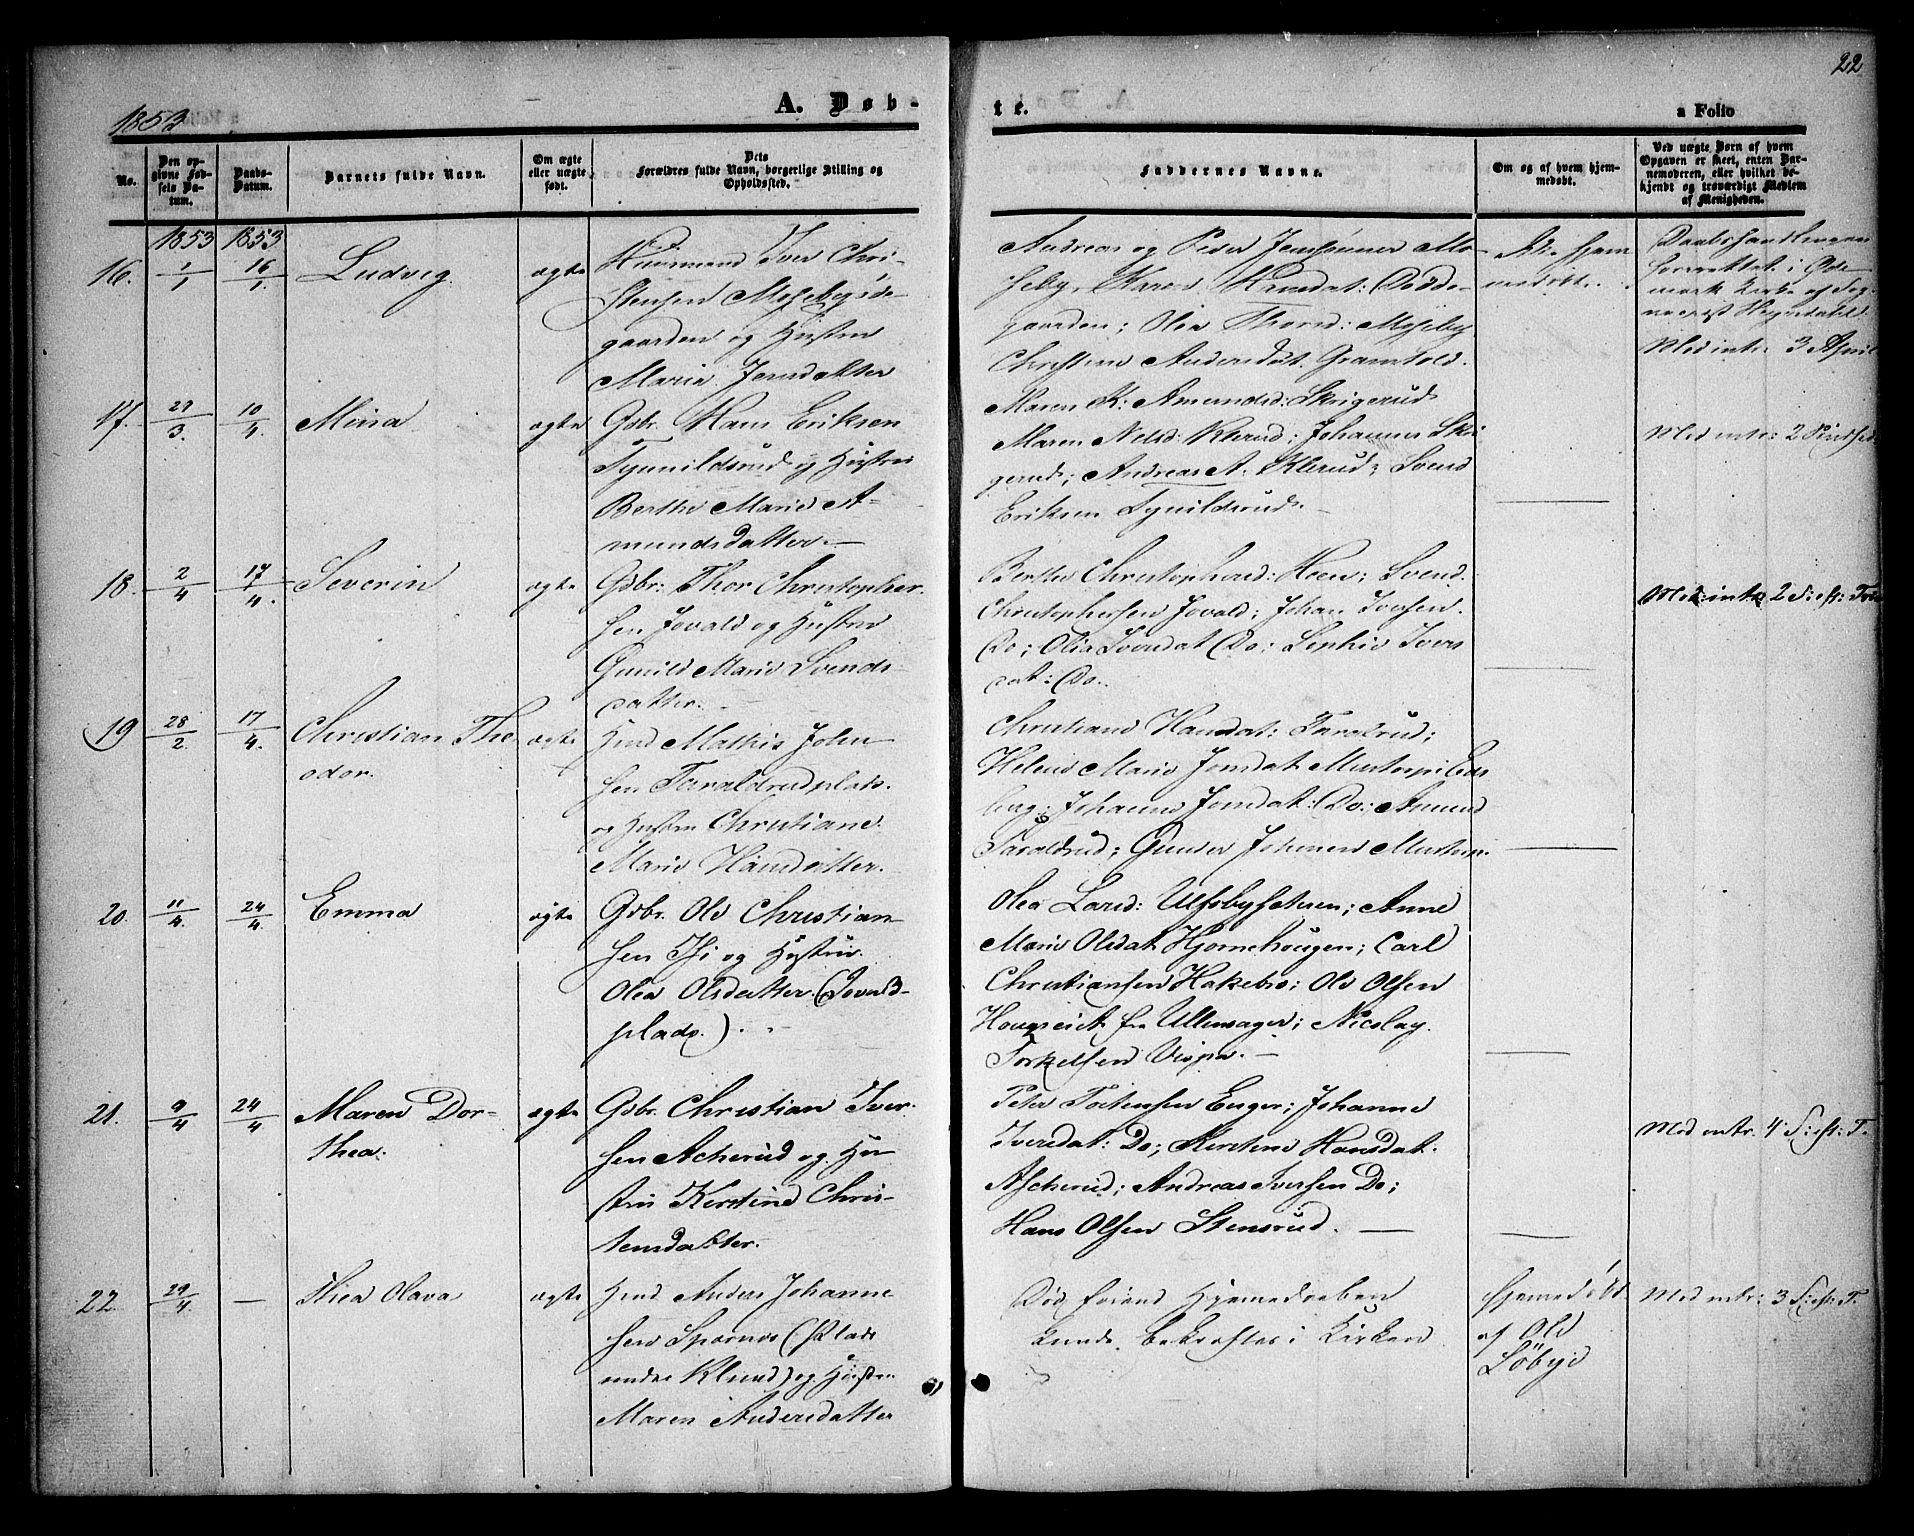 22
1853
A. Døb-
te.
a Folio
No.
Den op-
givne Fød-
sels Da-
tum.
Daabs-
Datum.
Barnets fulde Navn.
Om ægte
eller uægte
født.
Dets
Forældres fulde Navn, borgerlige Stilling og
Opholdssted.
Faddernes Navne.
Om og af hvem hjem-
medøbt.
Ved uægte Børn af hvem
Opgaven er skeet, enten Bar-
nemoderen, eller hvilket be-
kjendt og troværdigt Medlem
af Menigheden.
1853 1853
16. 1/1 16/1 Ludvig ægte
Huusmand Iver Chri-
stensen Mosebyøde-
gaarden og Hustru
Maria Jensdatter
Andreas og Peder Jensønner Mo-
seby, Karen Knudsdat: Ødde-
gaarden; Olea Thors: Moseby
Christine Andersdat. Gramtold.
Ik: hjem
medøbt.
Daabshandlingen
forrettet i Øde-
mark Kirke af Sog-
nepræst
Mod intr: 3 April
17. 29/3. 10/4. Mina ægte
Gdbr. Hans Eriksen
Tyvildsrud og Hustru
Berthe Marie A-
mundsdatter.
Maren K: Amundsd: Skrigerud
Maren Nelsd: Klerud; Johannes Skri
gerud; Andreas A. Klerud; Svend
Eriksen Tyvildsrud.
Mod intr: 2 Pintsed
18. 2/4 17/4. Severin ægte
Gdbr: Thor Christopher-
sen Jovald og Hustru
Gunild Marie Svends-
datter.
Berthe Christophersd: Hoen; Svend
Christophersen Jovald; Johan Iversen
Do; Olia Svensdat Do; Sophie Ivers
dat: Do.
Mod: intr 2 S: eft: Tr
19 28/2. 17/4. Christian The
odor. ægte
Hmd Mathis John-
sen Taraldrudplads.
og Hustru Christiane
Marie Hansdatter.
Christiane Hansdat: Taralrud;
Helene Marie Jonsdat Mustorp i Eds
berg; Johanne Jonsdat: Do: Amund
Taraldrud; Gunder Johnsen Mustorp.
20. 11/4. 24/4. Emma ægte
Gdbr. Ole Christian-
sen Thi og Hustru
Olea Olsdatter (Jovald-
plads.)
Olea Larsd: Ulfsbysetren; Anne
Marie Olsdat Hjornehougen; Carl
Christiansen Hakebo; Ole Olsen
fra Ullensager; Nicolay
Torkelsen Vispa.
21. 9/4 24/4 Maren Dor-
thea. ægte
Gdbr. Christian Iver-
sen Acherud og Hu
stru Kerstine Chris-
tensdatter.
Peter Tostensen Enger; Johanne
Iversdat: Do; Kerstine Hansdat
Ascherud; Andreas Iversen Do;
Hans Olsen Stensrud.
Mod intr. 4 S: eft: T.
22. 29/4 — Thea Olava ægte
Hmd Anders Johanne
sen Spornes (Plads
under Klund) og Hustru
Maren Andersdatter
Død førend Hjemmedaaben
kunde bekræftes i Kirken
hjemmedøbt
af Ole
Löbye
Mod intr: 3 S: eft: T.